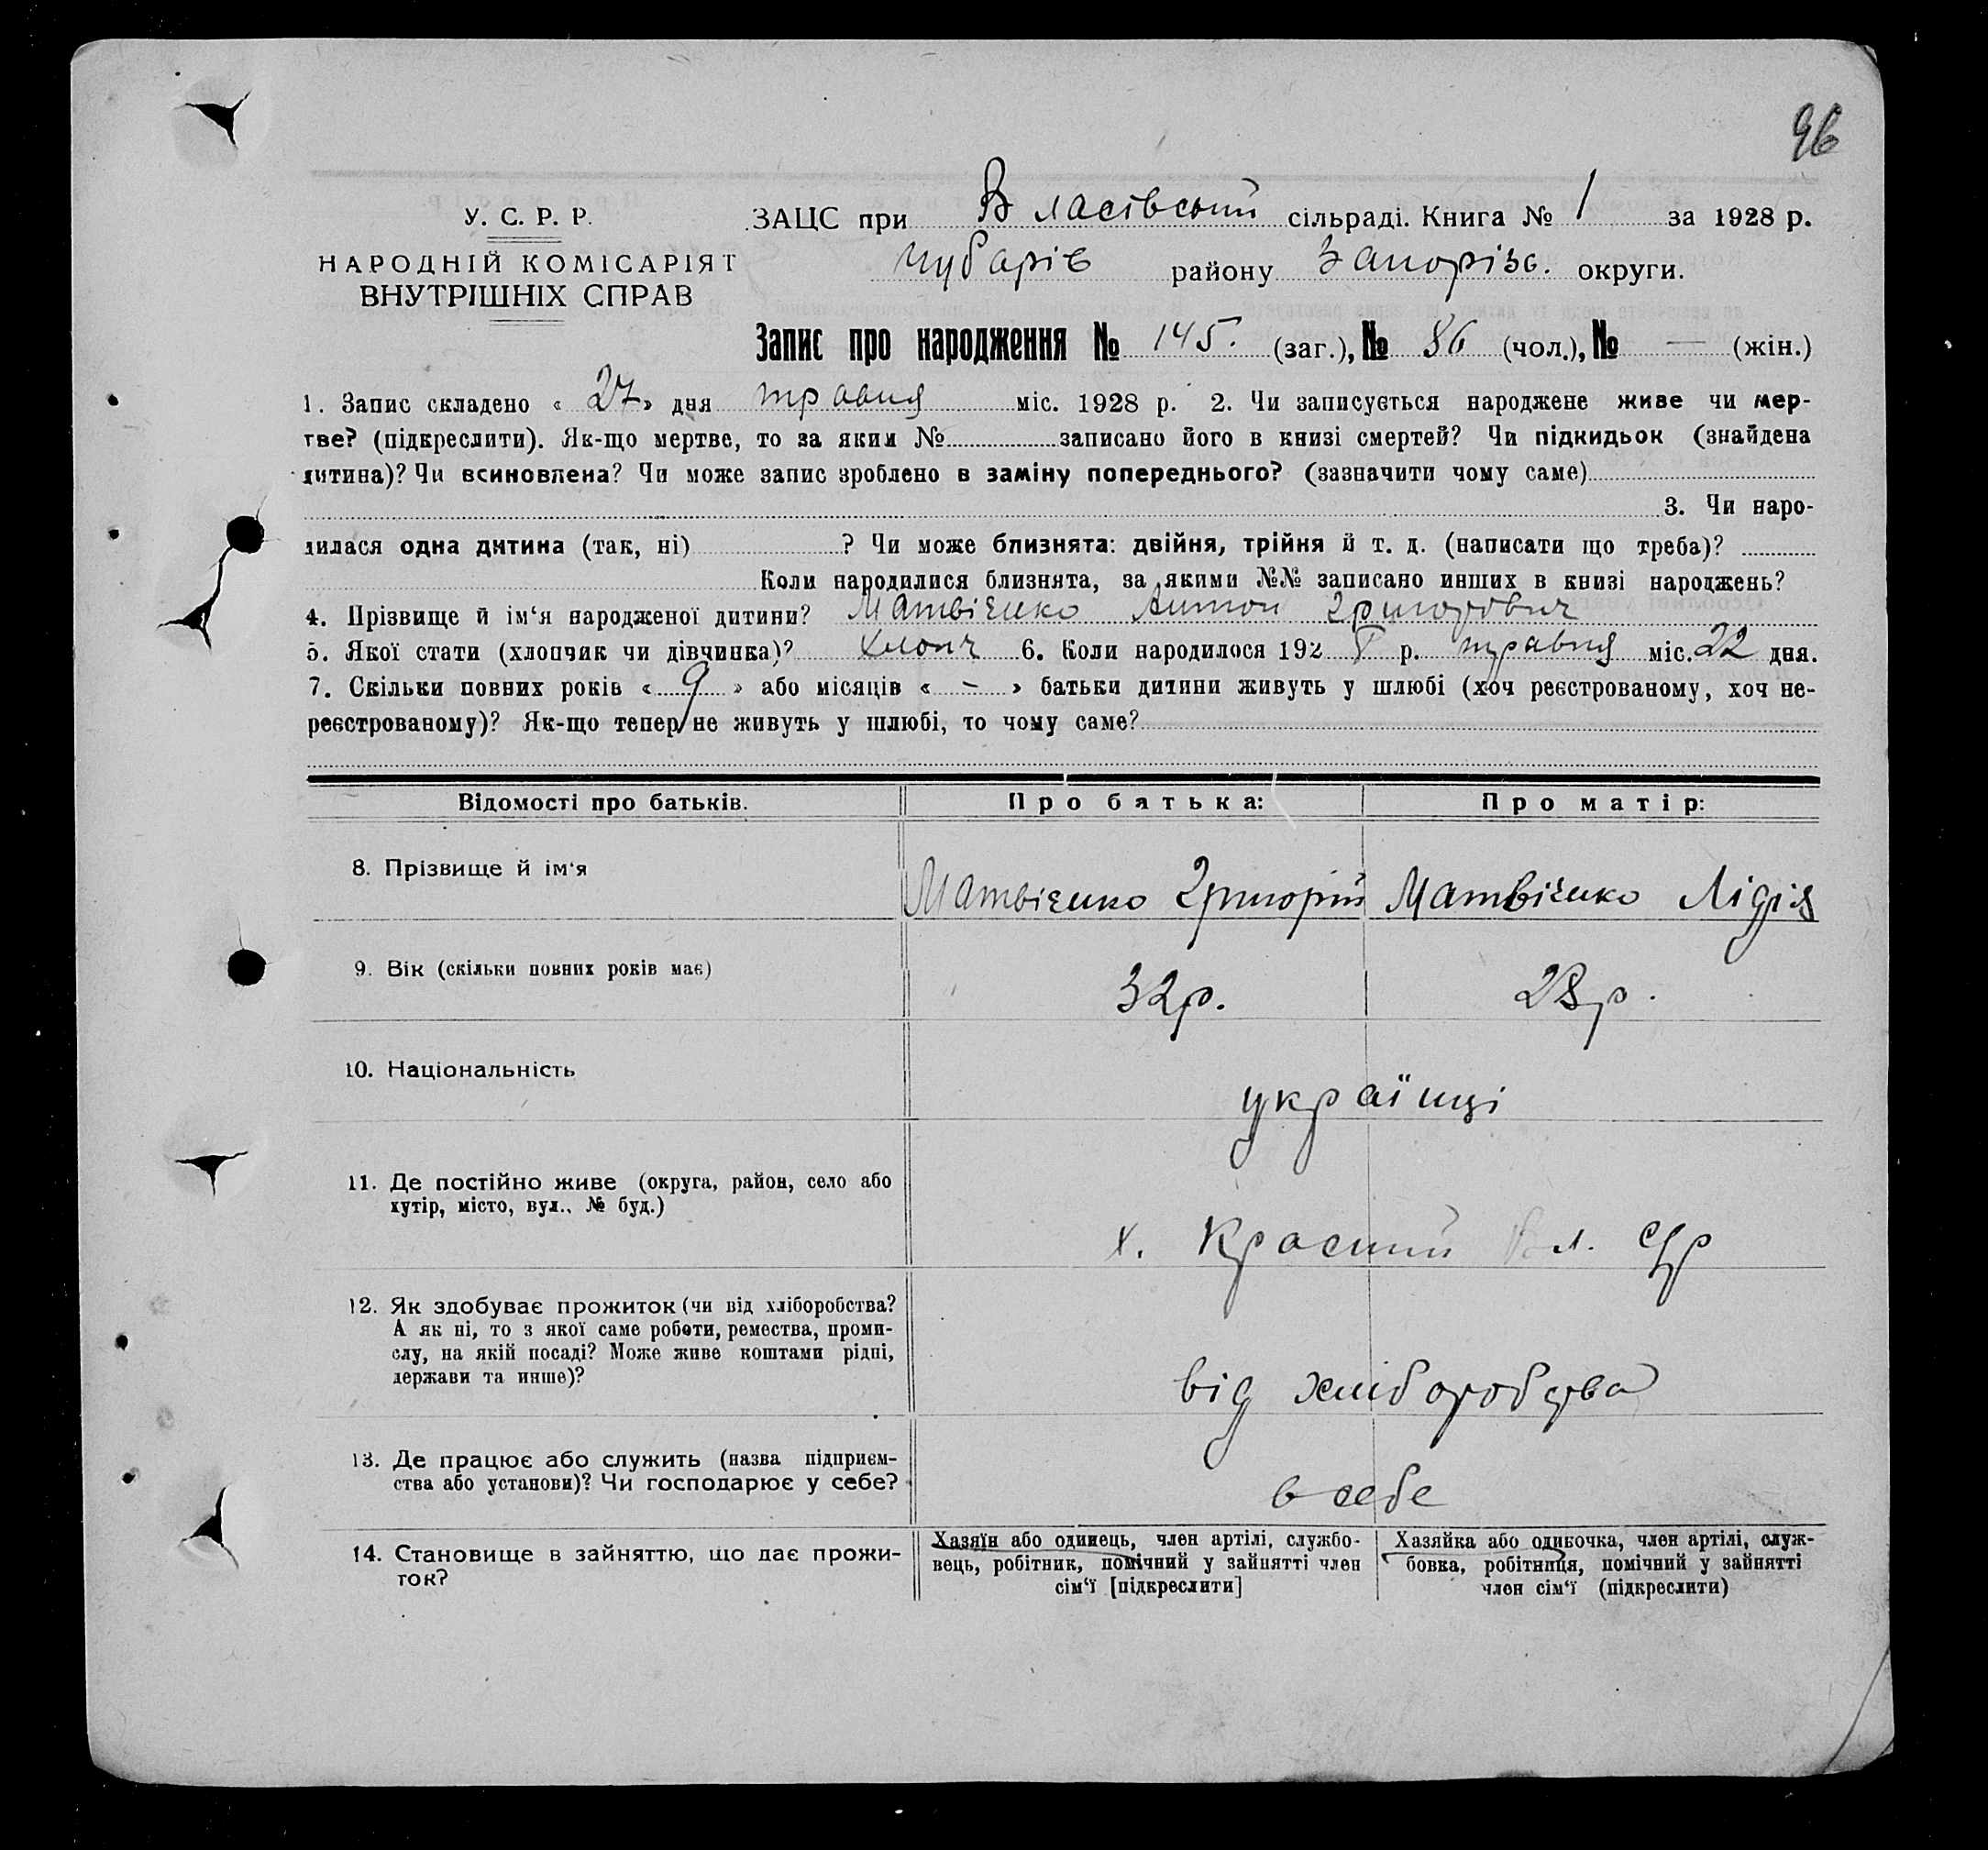 96
У. С. Р. Р. ЗАЦС при Власівський сільраді. Книга № 1 за 1928 р.
НАРОДНІЙ КОМІСАРІЯТ Чубарів району Запоріз. округи.
ВНУТРІШНІХ СПРАВ
Запис про народження № 145. (заг.), № 86 (чол.), № — (жін.)
1. Запис складено « 27 » дня травня міс. 1928 р. 2. Чи записується народжене живе чи мер-
тве? (підкреслити). Як-що мертве, то за яким № записано його в книзі смертей? Чи підкидьок (знайдена
дитина)? Чи всиновлена? Чи може запис зроблено в заміну попереднього? (зазначити чому саме)
3. Чи наро-
дилася одна дитина (так, ні) ? Чи може близнята: двійня, трійня й т. д. (написати що треба)?
Коли народилися близнята, за якими №№ записано инших в книзі народжень?
4. Прізвище й ім‘я народженої дитини? Матвієнко Антон Григорович
5. Якої статі (хлопчик чи дівчинка)? хлопч 6. Коли народилося 192 8 р. травня міс. 22 дня.
7. Скільки повних років « 9 » або місяців « - » батьки дитини живуть у шлюбі (хоч реєстрованому, хоч не-
реєстрованому)? Як-що тепер не живуть у шлюбі, то чому саме?
Відомості про батьків. Про батька: Про матір:
8. Прізвище й ім‘я Матвієнко Григорій Матвієнко Лідія
9. Вік (скільки повних років має) 32р. 28р.
10. Національність українці
11. Де постійно живе (округа, район, село або
хутір, місто, вул., № буд.)
х. Красний Вл. с/р
12. Як здобуває прожиток (чи від хліборобства?
А як ні, то з якої саме роботи, ремества, проми-
слу, на якій посаді? Може живе коштами рідні,
держави та инше)?
від хліборобства
13. Де працює або служить (назва підприєм-
ства або установи)? Чи господарює у себе?
в себе
14. Становище в зайняттю, що дає прожи-
ток?
Хазяїн або одинець, член артілі, службо-
вець, робітник, помічний у зайнятті член
сім‘ї [підкреслити]
Хазяйка або одиночка, член артілі, служ-
бовка, робітниця, помічний у зайнятті
член сім‘ї (підкреслити)